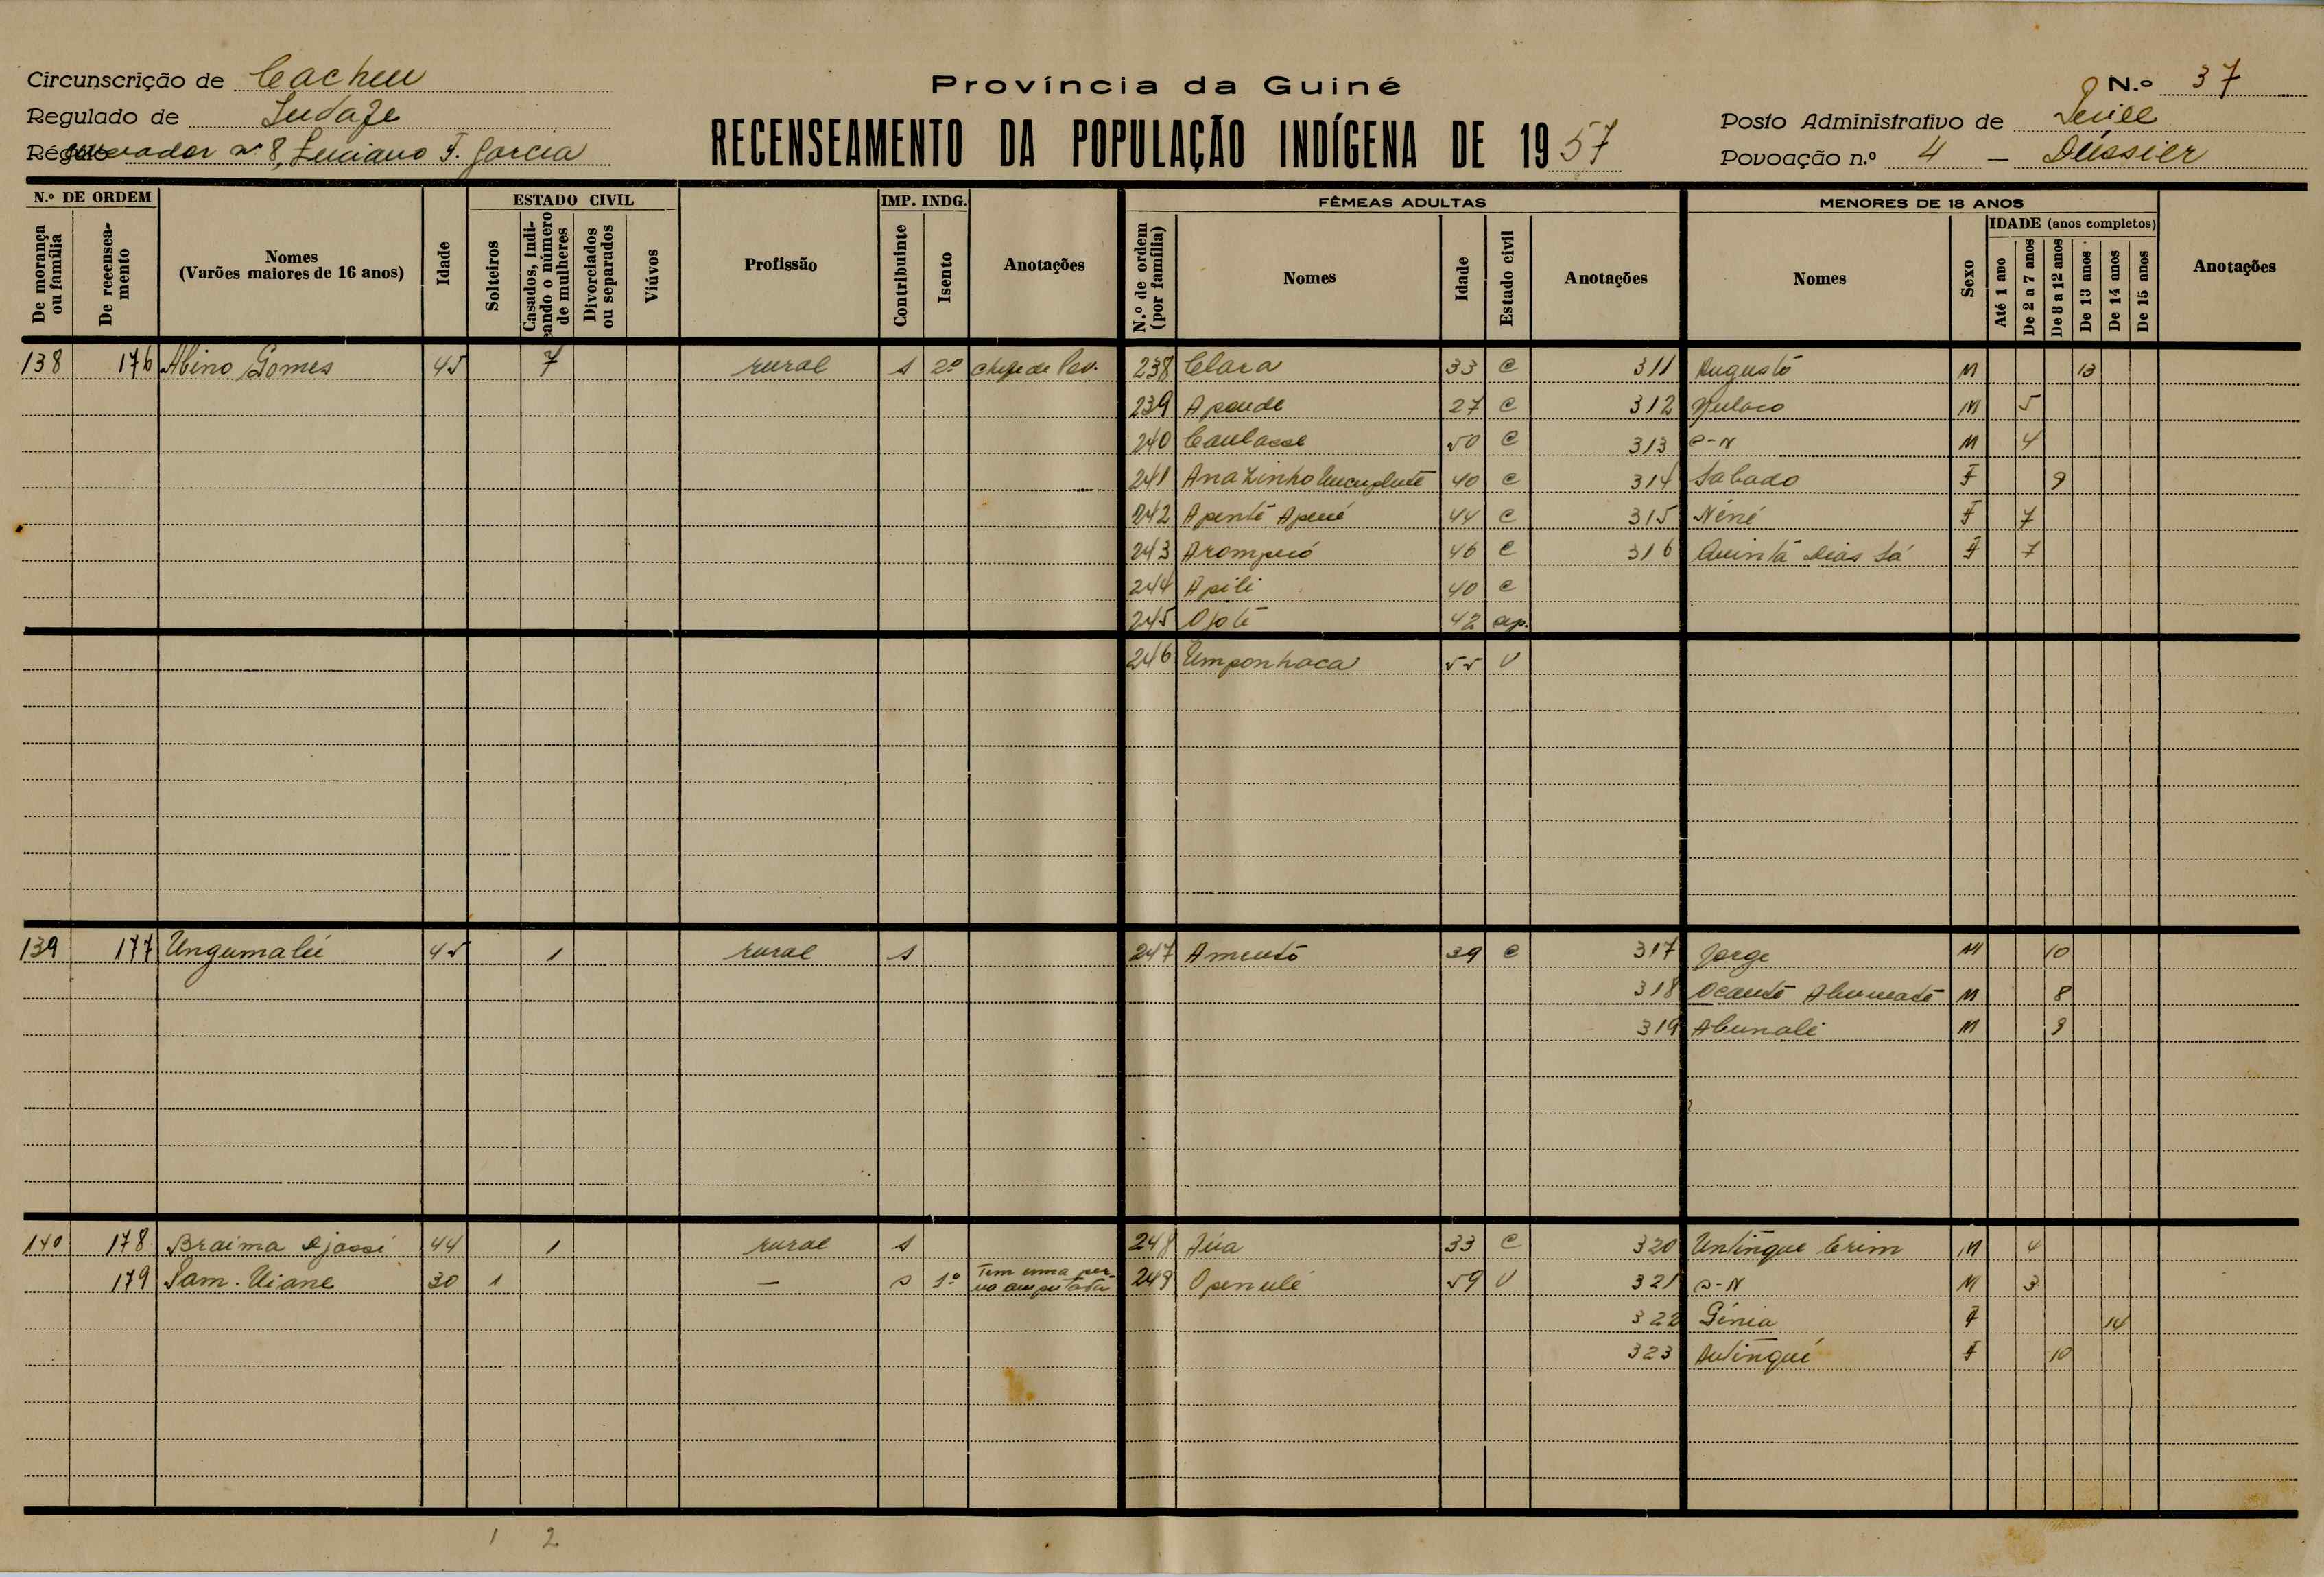 Circunscrição de Cacheu
Província da Guiné
N.º 37
Regulado de
Posto Administrativo de
nº 8, Luciano F. Garcia
RECENSEAMENTO DA POPULAÇÃO INDÍGENA DE 1957
Povoação n.º 4 –
N.º DE ORDEM
De morança ou família
De recenseamento
Nomes
(Varões maiores de 16 anos)
Idade
ESTADO CIVIL
Solteiros
Casados, indicando o número de mulheres
Divorciados ou separados
Viúvos
Profissão
IMP. INDG.
Contribuinte
Isento
Anotações
FÊMEAS ADULTAS
N.º de ordem (por família)
Nomes
Idade
Estado civil
Anotações
MENORES DE 18 ANOS
Nomes
Sexo
IDADE (anos completos)
Até 1 ano
De 2 a 7 anos
De 8 a 12 anos
De 13 anos
De 14 anos
De 15 anos
Anotações
138 176 Albino Gomes 45 7 rural s 2º Chefe de Pov. 238 Clara 33 C 311 Augusto M 13
239 Apaude 27 C 312 M 5
240 50 C 313 S-N M 4
241 Anazinho 40 C 314 Sabado F 9
242 44 C 315 Nené F 7
243 46 C 316 Quintà Dias Sá F 7
244 Apili 40 C
245 Ojoté 42
246 Umponhaca 55 V
139 177 45 1 rural s 247 39 C 317 Jorge M 10
318 M 8
319 Abunali M 9
140 178 Braima Djassi 44 1 rural s 248 33 C 320 Untinque Erim M 4
179 Sam. 30 1 — s 1º Tem uma perna amputada 249 Openule 59 V 321 S-N M 3
322 Génia F 14
323 F 10
1 2